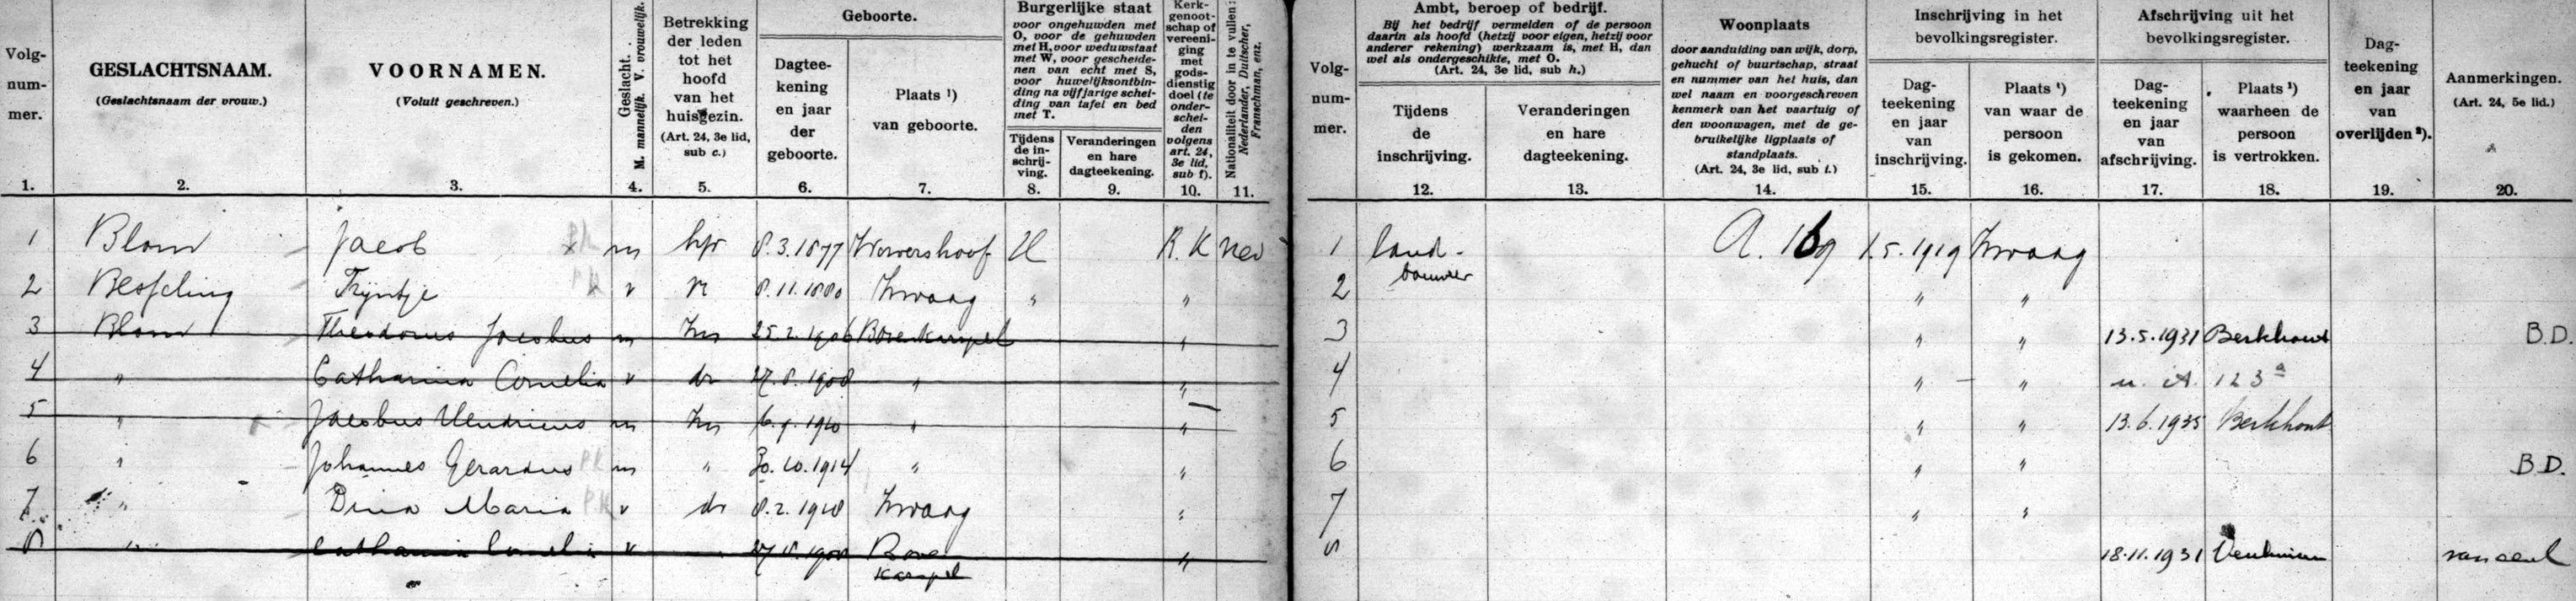 Volg-nummer.
1.
GESLACHTSNAAM.
(Geslachtsnaam der vrouw.)
2.
VOORNAMEN.
(Voluit geschreven.)
3.
Geslacht.
M. mannelijk. V. vrouwelijk.
4.
Betrekking
der leden
tot het
hoofd
van het
huisgezin.
(Art. 24, 3e lid,
sub c.)
5.
Geboorte.
Dagtee-
kening
en jaar
der
geboorte.
6.
Plaats ¹)
van geboorte.
7.
Burgerlijke staat
voor ongehuwden met
O, voor de gehuwden
met H, voor weduwstaat
met W, voor gescheide-
nen van echt met S,
voor huwelijksontbin-
ding na vijfjarige schei-
ding van tafel en bed
met T.
Tijdens
de in-
schrij-
ving.
8.
Veranderingen
en hare
dagteekening.
9.
Kerk-
genoot-
schap of
vereeni-
ging
met
gods-
dienstig
doel (te
onder-
schei-
den
volgens
art. 24,
3e lid,
sub f).
10.
Nationaliteit door in te vullen:
Nederlander, Duitscher,
Franschman, enz.
11.
Volg-
num-
mer.
Ambt, beroep of bedrijf.
Bij het bedrijf vermelden of de persoon
daarin als hoofd (hetzij voor eigen, hetzij voor
anderer rekening) werkzaam is, met H, dan
wel als ondergeschikte, met O.
(Art. 24, 3e lid, sub h.)
Tijdens
de
inschrijving.
12.
Veranderingen
en hare
dagteekening.
13.
Woonplaats
door aanduiding van wijk, dorp,
gehucht of buurtschap, straat
en nummer van het huis, dan
wel naam en voorgeschreven
kenmerk van het vaartuig of
den woonwagen, met de ge-
bruikelijke ligplaats of
standplaats.
(Art. 24, 3e lid, sub i.)
14.
Inschrijving in het
bevolkingsregister.
Dag-
teekening
en jaar
van
inschrijving.
15.
Plaats ¹)
van waar de
persoon
is gekomen.
16.
Afschrijving uit het
bevolkingsregister.
Dag-
teekening
en jaar
van
afschrijving.
17.
Plaats ¹)
waarheen de
persoon
is vertrokken.
18.
Dag-
teekening
en jaar
van
overlijden ²).
19.
Aanmerkingen.
(Art. 24, 5e lid.)
20.
1 Blom Jacob m hfr 8.3.1877 Wervershoof H R.K Ned 1 land-bouwer A. 169 1.5.1919 Zwaag
2 Besseling Trijntje PK v vr 8.11.1880 Zwaag " " 2 " "
3 Blom Theodorus Jacobus m Zn 25.2.1906 Bovenkarspel " 3 " " 13.5.1931 Berkhout B.D.
4 " Catharina Cornelia v dr 27.8.1908 " " 4 " " n. A. 123ᵃ
5 " Jacobus Hendricus m Zn 6.9.1910 " " 5 " " 13.6.1935 Berkhout
6 " Johannes Gerardus PK m " 30.10.1914 " " 6 " " B.D.
7 " Dina Maria PK v dr 8.2.1918 Zwaag " 7 " "
8 " Catharina Cornelia v 27.8.1908 Boven karspel " 8 18.11.1931 Venhuizen